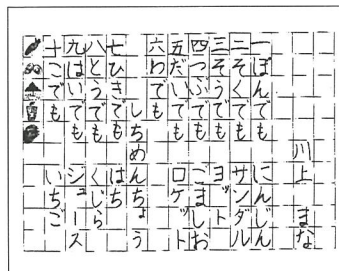 川上 まな
一ぽんでも にんじん
二そくでも サンダル
三そうでも ヨット
四つぶでも ごましお
五だいでも ロケット
六わでも
しちめんちょう
七ひきでも はち
八とうでも くじら
九はいでも ジュース
十こでも いちご